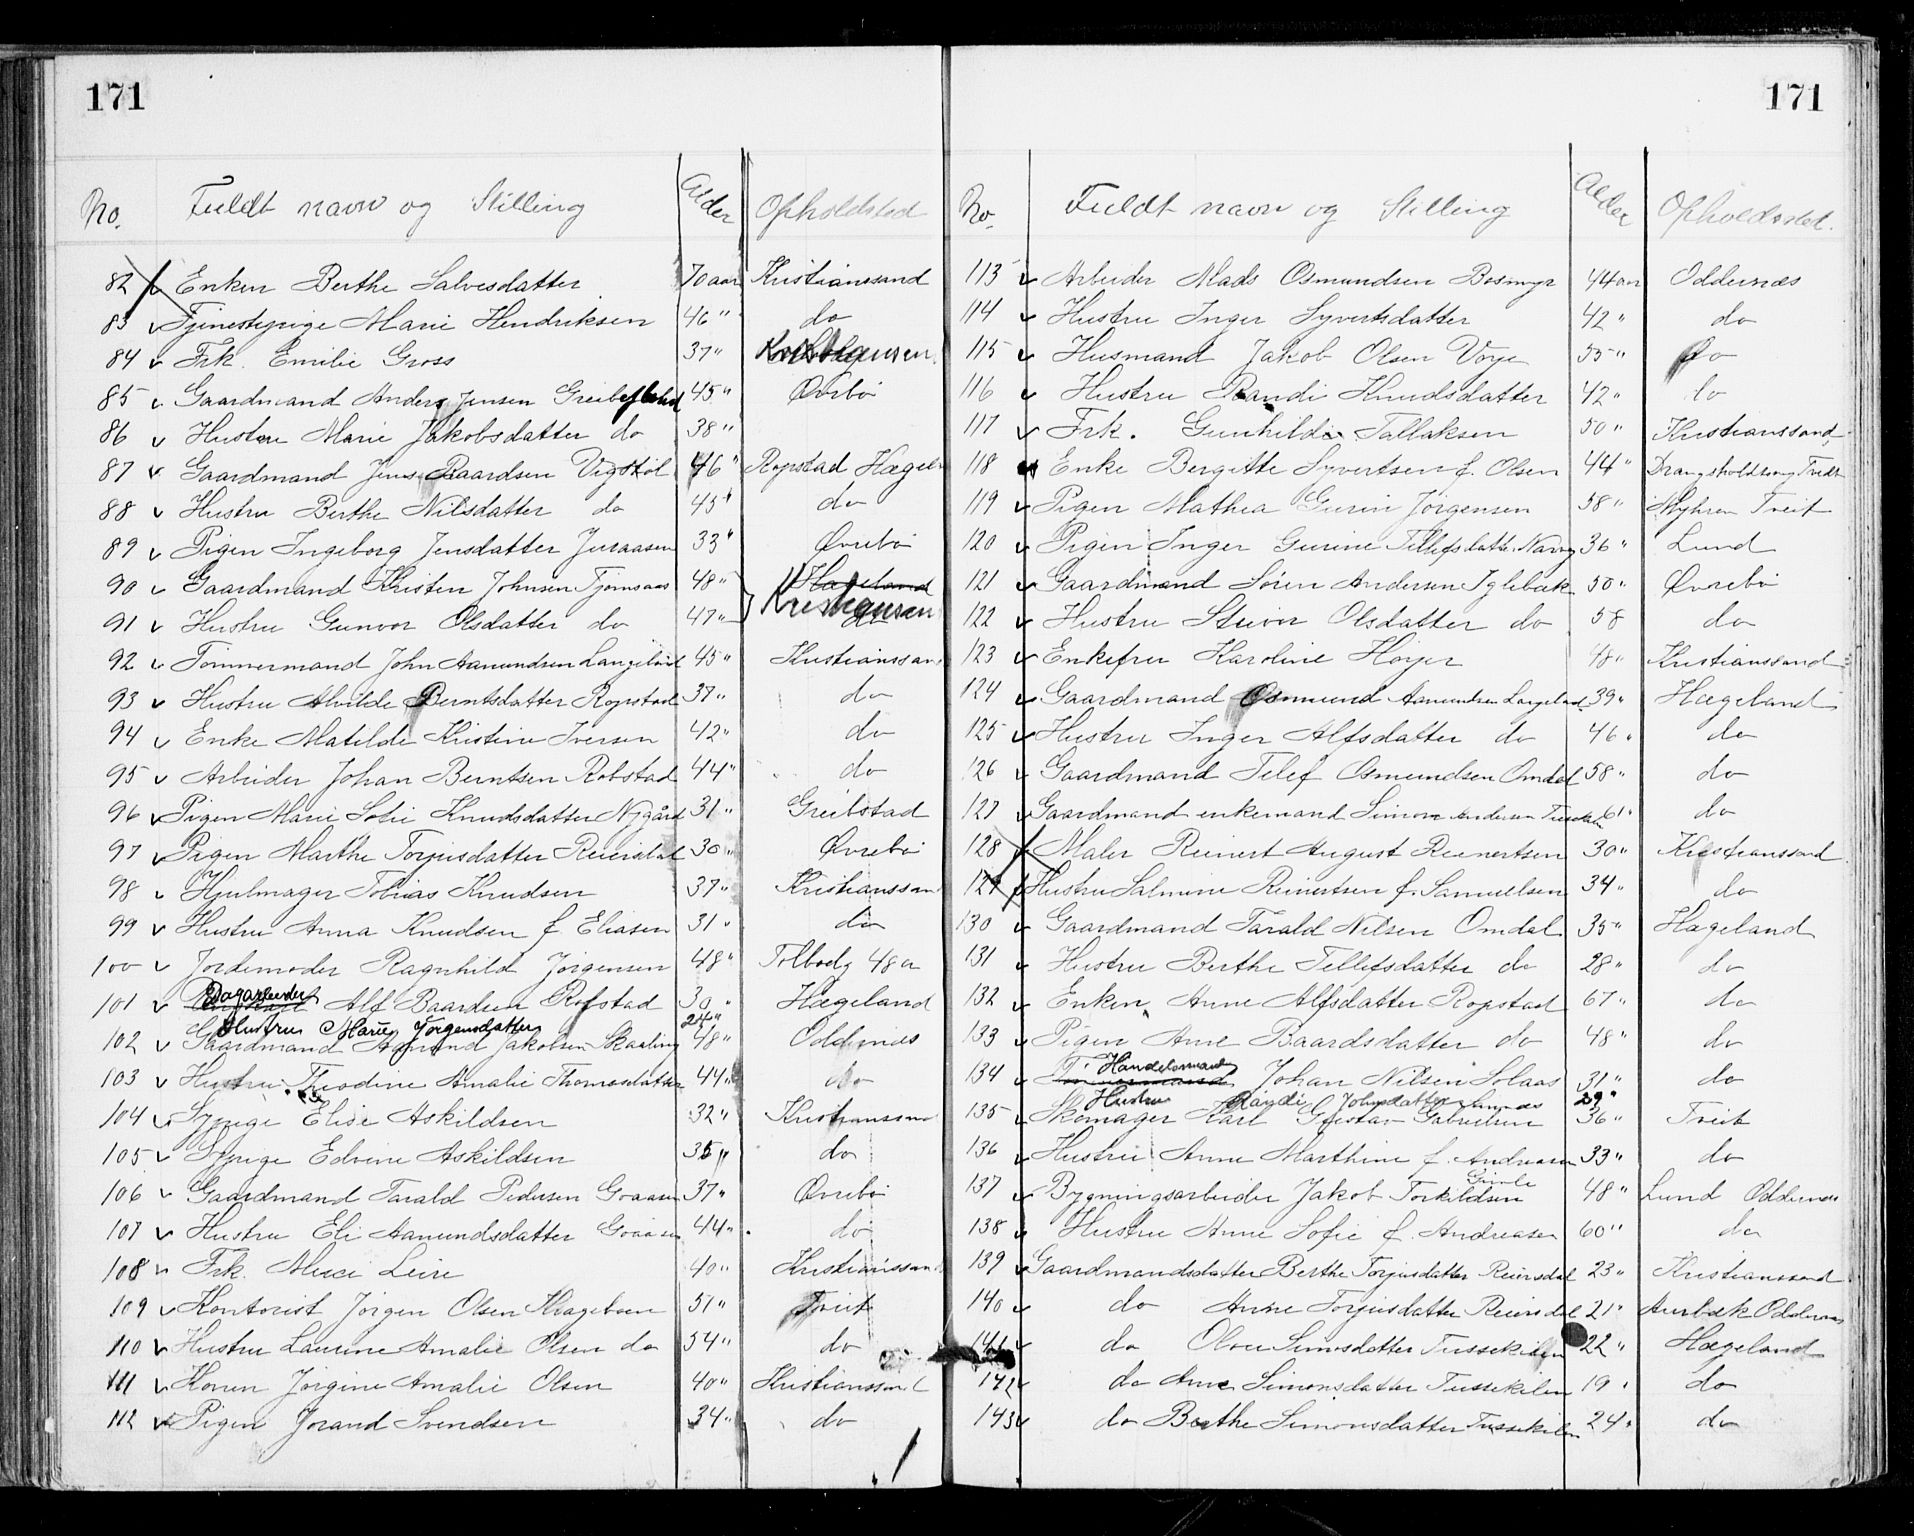 171
No. Fuldt navn og Stilling Alder Opholdsted
82 Enken Berthe Salvesdatter 70 aar Kristianssand
83 Tjenestepige Marie Hendriksen 46 " do
84 Frk. Emilie Gross 37 "
85 Gaardmand Anders Jensen Greibesland 45 " Øvrebö
86 Hustru Marie Jakobsdatter do 38 "
87 Gaardmand Jens Baardsen Vigstöl 46 " Ropstad Hægel
88 Hustru Berthe Nilsdatter do 45 " do
89 Pigen Ingeborg Jensdatter 33 " Øvrebö
90 Gaardmand Kristen Johnsen Tjomsaas 48 " Hægeland
91 Hustru Gunvor Olsdatter do 47 " do
92 Tömmermand John Aamundsen Langeland 45 " Kristianssand
93 Hustru Alvilde Berntsdatter Ropstad 37 " do
94 Enke Matilde Kristine Iversen 42 " do
95 Arbeider Johan Berntsen Robstad 44 " do
96 Pigen Marie Sofie Knudsdatter Nygård 31 " Greibstad
97 Pigen Marthe Torjusdatter Reiersdal 30 " Øvrebö
98 Hjulmager Tobias Knudsen 37 " Kristianssan
99 Hustru Anna Knudsen f. Eliasen 31 " do
100 Jordemoder Ragnhild Jörgensen 48 " Tolbodg 48 a
101 Dagarbeider Alf Baardsen Ropstad 30 " Hægeland
Hustru Marie Jörgensdatter 24 "
102 Gaardmand Aamund Jakobsen Skaaling 48 " Oddernes
103 Hustru Theodine Amalie Thomasdatter 44 " do
104 Sypige Elise Askildsen 32 " Kristianssand
105 Sypige Edvine Askildsen 35 " do
106 Gaardmand Tarald Pedersen Goaasen 37 " Øvrebö
107 Hustru Eli Aamundsdatter Goaasen 44 " do
108 Frk. Meier Leire 40 " Kristianssand
109 Kontorist Jörgen Olsen Krageboen 51 " Tveit
110 Hustru Laurine Amalie Olsen do 54 " do
111 Konen Jörgine Amalie Olsen 40 " Kristianssand
112 Pigen Jorand Svendsen 34 " do
171
No. Fuldt navn og Stilling Alder Opholdssted.
113 Arbeider Mads Osmundsen Bosmyr 44 aar Oddernæs
114 Hustru Inger Syvertsdatter 42 " do
115 Husmand Jakob Olsen Voje 55 " do
116 Hustru Randi Knudsdatter 42 " do
117 Frk. Gunhilda Tallaksen 50 " Kristianssand
118 Enke Bergitte Syvertsen f. Olsen 44 " Drangsholdtsvog Tveit
119 Pigen Mathea Gurin Jörgensen 58 " Myhren Tveit
120 Pigen Inger Gurine Tellefsdatter 36 " Lund
121 Gaardmand Sören Andersen Iglebæk 50 " Øvrebö
122 Hustru Stuvor Olsdatter do 58 do
123 Enkefru Karoline Höyer 48 " Kristianssand
124 Gaardmand Osmund Aamundsen Langeland 39 " Hægeland
125 Hustru Inger Alfsdatter do 46 " do
126 Gaardmand Telef Osmundsen Omdal 58 " do
127 Gaardmand enkemand Simon Andersen Tussekilen 61 " do
128 Maler Reinert August Reinertsen 30 " Kristianssand
129 Hustru Salmine Reinertsen f. Samuelsen 34 " do
130 Gaardmand Tarald Nilsen Omdal 35 " Hægeland
131 Hustru Berthe Tellefsdatter do 28 " do
132 Enken Anne Alfsdatter Ropstad 67 " do
133 Pigen Anne Baardsdatter do 48 " do
134 Handelsmand Johan Nilsen Solaas 31 " do
Hustru Randi Johnsdatter 29 "
135 Skomager Karl Gustav Gabrielsen 36 " Tveit
136 Hustru Anne Marthine f. Andreasen 33 " do
137 Bygningsarbeider Jakob Torkildsen Gimle 48 " Lund Oddernes
138 Hustru Anne Sofie f. Andreasen 60 " do
139 Gaardmandsdatter Berthe Torjusdatter Reiersdal 23 " Kristianssand
140 do Anne Torjusdatter Reiersdal 21 " Aurbæk Oddernes
141 do Olave Simonsdatter Tussekilen 22 " Hægeland
142 do Anne Simonsdatter Tussekilen 19 " do
143 do Berthe Simonsdatter Tussekilen 24 " do